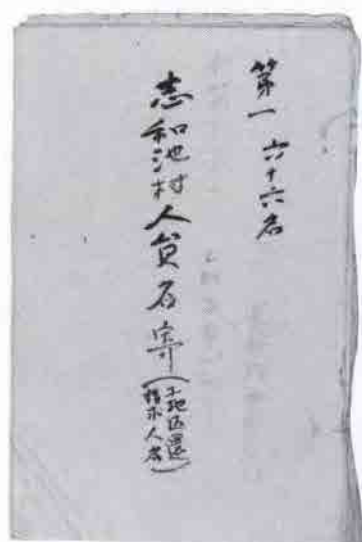 第一 六十六名
志和池村人員名寄(土地返還
請求人名)